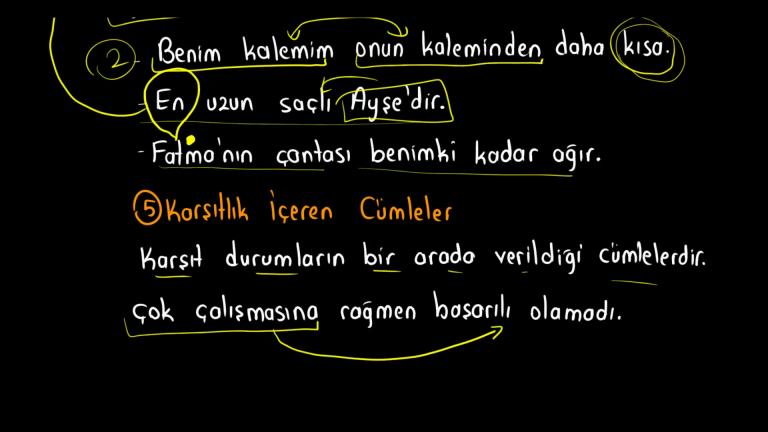 2 - Benim kalemim onun kaleminden daha kısa.
- En uzun saçlı Ayşe'dir.
- Fatma'nın çantası benimki kadar ağır.
5 Karşıtlık İçeren Cümleler
Karşıt durumların bir arada verildiği cümlelerdir.
Çok çalışmasına rağmen başarılı olamadı.